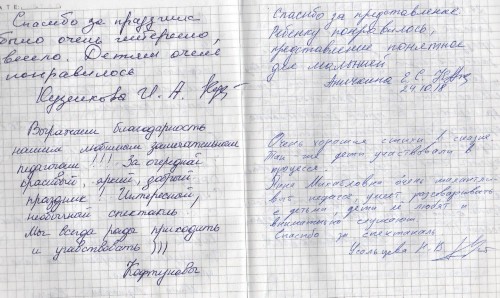 Спасибо за праздник
было очень интересно,
весело. Детям очень
понравилось
Кузенкова И. А.
Выражаем благодарность
нашим любимым замечательным
педагогам !!! За очередной
красивый, яркий, добрый
праздник! Интересный,
необычный спектакль
Мы всегда рады приходить
и учавствовать )))
Кафтуновы
Спасибо за представление.
Ребенку понравилось,
представление понятное
для малышей
Аничкина Е. С.
24.10.18
Очень хорошая сказка
Так же дети участвовали в
процессе.
Анна Михайловна очень
педагог умеет разговаривать
с детьми, дети её любят и
внимательно слушают
Спасибо за спектакль
Усольцева Н. В.